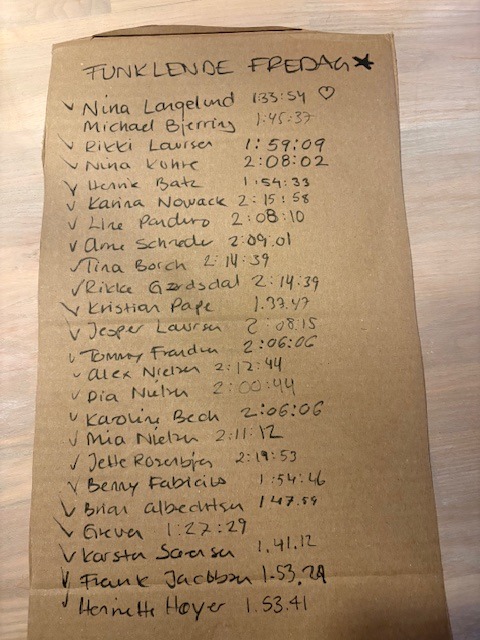 FUNKLENDE FREDAG ★
✓ Nina Langelund 1:33:54 ♡
Michael Bjerring 1:45:37
✓ Rikki Laursen 1:59:09
✓ Nina Kühne 2:08:02
✓ Henrik Batz 1:54:33
✓ Karina Nowack 2:15:58
✓ Line 2:08:10
✓ Arne Schrøder 2:09.01
✓ Tina Borch 2:14:39
✓ Rikke Gerdsdal 2:14:39
✓ Kristian Pape 1.37.47
✓ Jesper Laursen 2:08.15
✓ Tommy Frandsen 2:06:06
✓ Alex Nielsen 2:12:44
✓ Dia Nielsen 2:00:44
✓ Karoline Bech 2:06:06
✓ Mia Nielsen 2:11:12
✓ Jette Rosenbjer 2:19:53
✓ Benny Fabricius 1:54:46
✓ Brian Albechtsen 1.47.59
✓ Greven 1:27:29
✓ Karsten Sørensen 1.41.12
✓ Frank Jacobsen 1.53.29
✓ Henriette Høyer 1.53.41